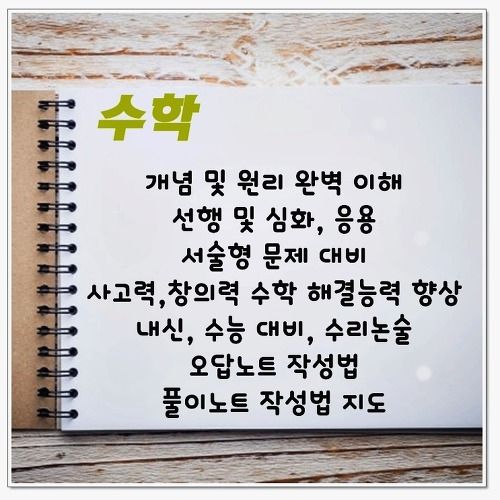 수학
개념 및 원리 완벽 이해
선행 및 심화, 응용
서술형 문제 대비
사고력,창의력 수학 해결능력 향상
내신, 수능 대비, 수리논술
오답노트 작성법
풀이노트 작성법 지도